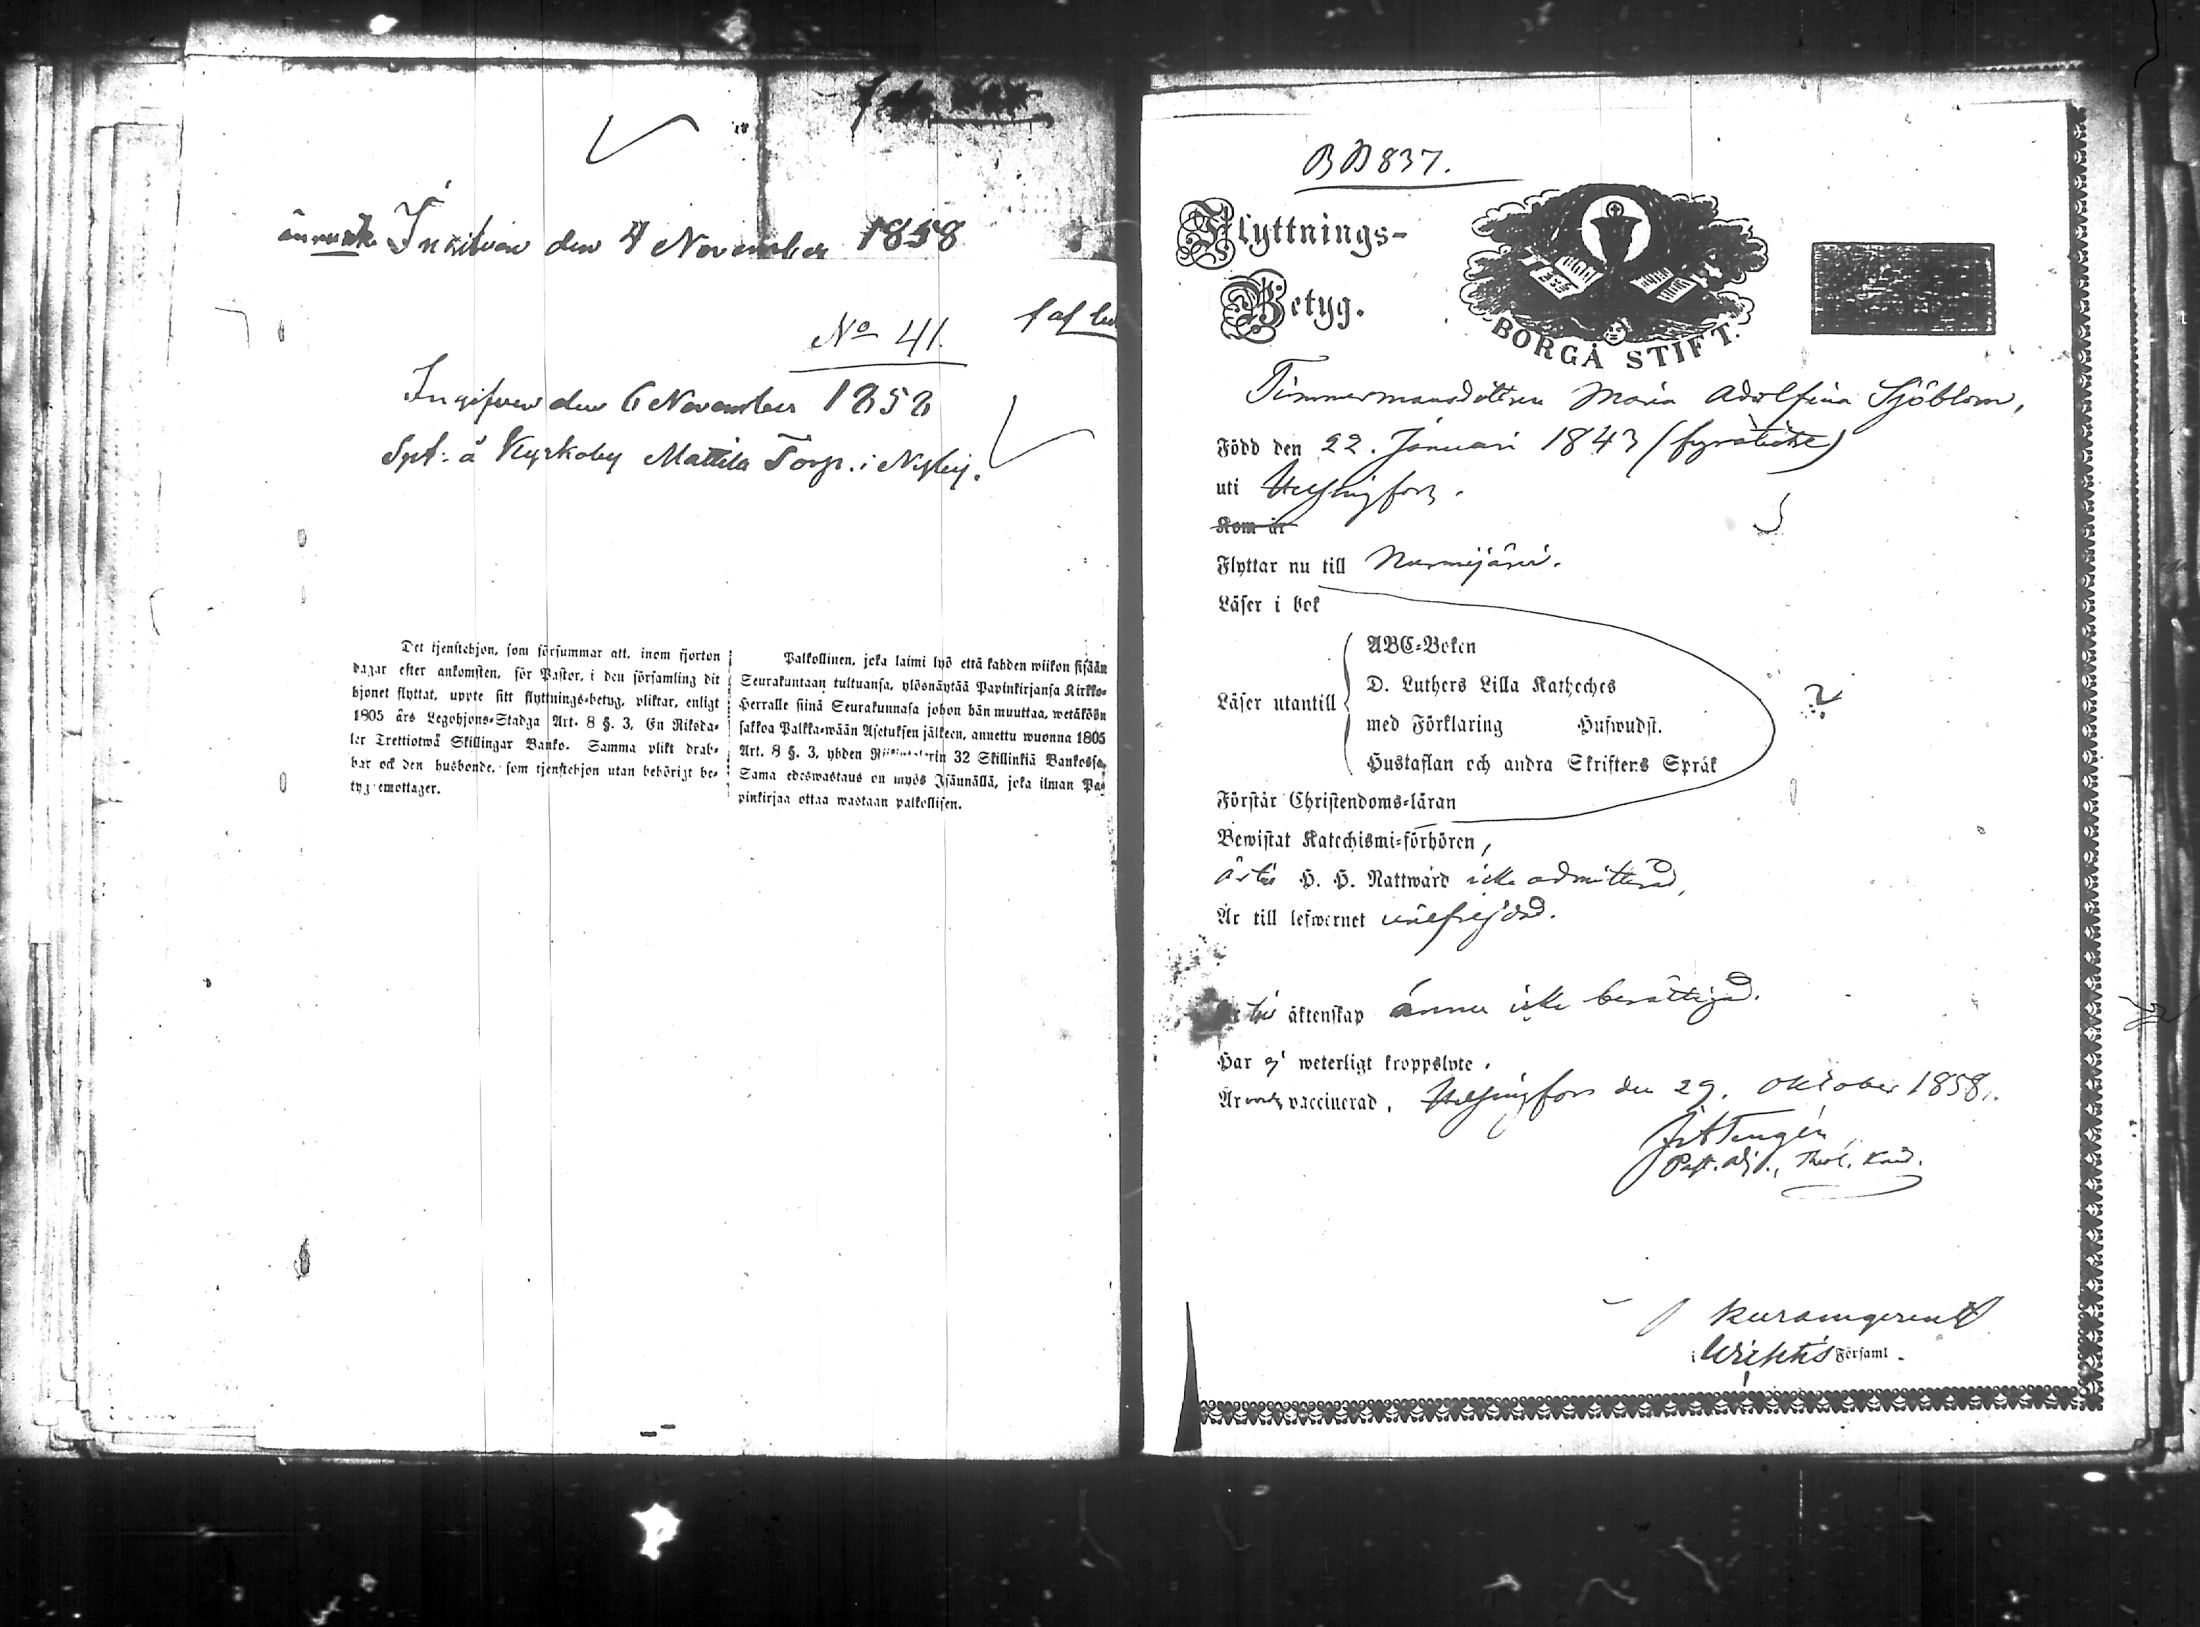 Inskrifven den 4 November 1858
No 41.
Ingifven den 6 November 1858
Sptt: å Kyrkoby Mattila Torp. i Nybÿ.
Det tjenstehjon, som försummar att, inom fjorton
dagar efter ankomsten, för Pastor, i den församling dit
hjonet flyttat, uppte sitt flyttnings-betyg, pliktar, enligt
1805 års Legohjons-Stadga Art. 8 §. 3, En Riksda-
ler Trettiotwå Skillingar Banko. Samma plikt drab-
bar ock den husbonde, som tjenstehjon utan behörigt be-
tyg emottager.
Palkollinen, joka laimi lyö että kahden wiikon sisään
Seurakuntaan tultuansa, ylösnäytää Papinkirjansa Kirkko-
Herralle siinä Seurakunnasa johon hän muuttaa, wetäköön
sakkoa Palkka-wään Asetuksen jälkeen, annettu wuonna 1805
Art. 8 §. 3, yhden Riikintalerin 32 Skillinkiä Bankossa.
Sama edeswastaus on myös Isännällä, joka ilman Pa-
pinkirjaa ottaa wastaan palkollisen.
B B 837.
Flyttnings-
Betyg.
BORGÅ STIFT.
Timmermansdottren Maria Adolfina Sjöblom,
Född den 22. Januari 1843 (fyratietre)
uti Helsingfors.
Kom år
Flyttar nu till Nurmijärvi.
Läser i bok
Läser utantill
ABC-Boken
D. Luthers Lilla Katheches
med Förklaring Huswudst.
Hustaflan och andra Skriftens Språk
Förstår Christendoms-läran
Bewistat Katechismi-förhören,
är till H. H. Nattward icke admitterad,
Är till lefwernet wälfrejdad.
till äktenskap ännu icke berättigad.
Har ej weterligt kroppslyte.
Är vaccinerad. Helsingfors den 29. Oktober 1858.
Past. adj., Theol. Kand.
i Wichtis Församl.